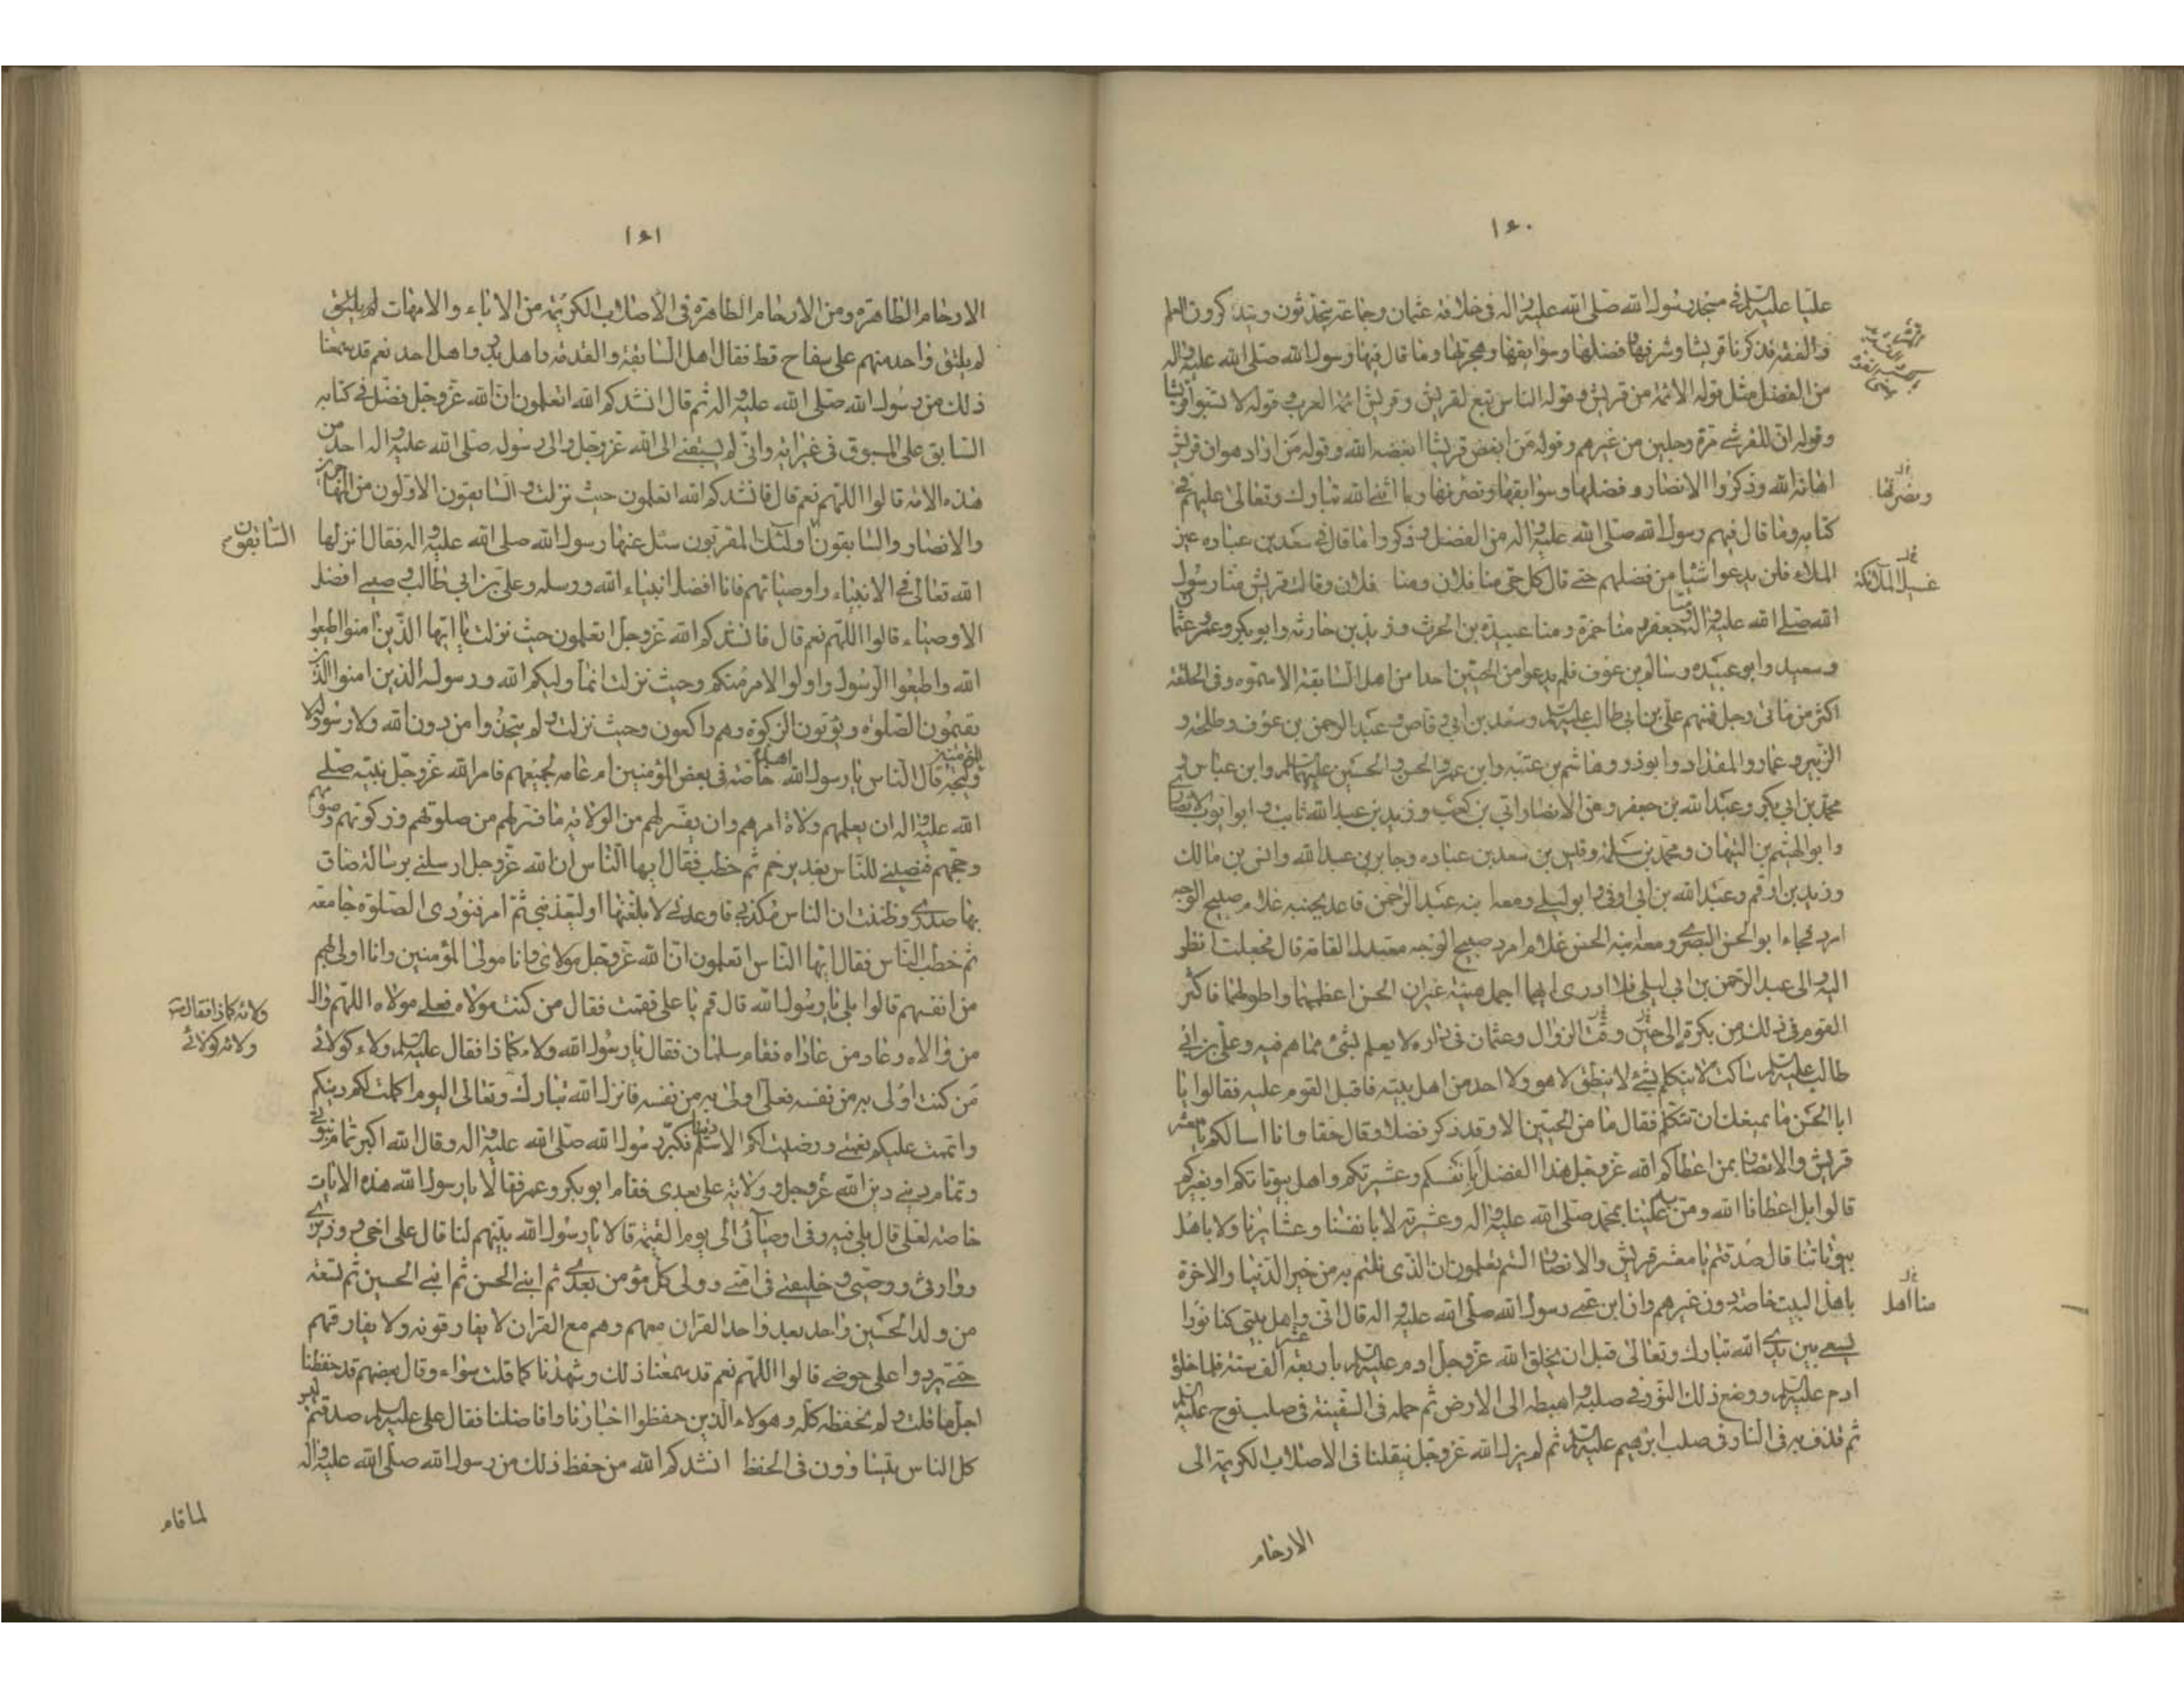 ١٤٠
عليا عليه السلام في مسجد رسول الله صلى الله عليه واله فى خلافة عثمان وجماعة يتحدثون ويتذاكرون العلم
والفقه فذكرنا قريشا وشرفها وفضلها وسوابقها وهجرتها وما قال فيها رسول الله صلى الله عليه واله
من الفضل مثل قوله الائمة من قريش وقوله الناس تبع لقريش وقريش ائمة العرب وقوله لا تسبوا قريشا
وقوله ان للقرشي قوة رجلين من غيرهم وقوله من ابغض قريشا ابغضه الله وقوله من اراد هوان قريش
اهانه الله وذكروا الانصار و فضلها وسوابقها ونصرتها وما اثنى الله تبارك وتعالى عليهم في
ونصرتها
كتابه وما قال فيهم رسول الله صلى الله عليه واله من الفضل وذكروا ما قال في سعد بن عباده
فلن يدعوا شيئا من فضلهم حتى قال كل حي منا فلان ومنا فلان وقالت قريش منا رسول
غسيل الملائكة
الله صلى الله عليه واله ومنا جعفر ومنا حمزة ومنا عبيدة بن الحرث وزيد بن حارثه وابو بكر وعمر وعثمان
وسعيد وابو عبيده وسالم بن عوف فلم يدعوا من الحيين احدا من اهل السابقة الا سموه وفى الحلقة
اكثر من مائتى رجل فمنهم على بن ابى طالب عليه السلم وسعد بن ابي وقاص وعبد الرحمن بن عوف وطلحة و
الزبير وعمار والمقداد وابو ذر وهاشم بن عتبه وابن عمر والحسن والحسين عليهما السلم وابن عباس و
محمد بن ابي بكر وعبد الله بن جعفر ومن الانصار ابى بن كعب وزيد بن عبد الله ثابت وابو ايوب الانصاري
وابو الهيثم بن التيهان ومحمد بن سلمة وقيس بن سعد بن عباده وجابر بن عبد الله وانس بن مالك
وزيد بن ارقم وعبد الله بن ابى اوفى وابو ليلى ومعه ابنه عبد الرحمن قاعد بجنبه غلام صبيح الوجه
امرد فجاء ابو الحسن البصرى ومعه ابنه الحسن غلام امرد صبيح الوجه معتدل القامة قال فجعلت انظر
اليه والى عبد الرحمن بن ابى ليلى فلا ادرى ايهما اجمل هيئة غير ان الحسن اعظمهما واطولهما فاكثر
القوم فى ذلك من بكرة الى حين وقت الزوال وعثمان فى داره لا يعلم بشئ مما هم فيه وعلى بن ابي
طالب عليه السلم ساكت لا يتكلم بشئ لا ينطق لا هو ولا احد من اهل بيته فاقبل القوم عليه فقالوا يا
ابا الحسن ما يمنعك ان تتكلم فقال ما من الحيين الا وقد ذكر فضلا وقال حقا وانا اسالكم يا معشر
قريش والانصار بمن اعطاكم الله عزوجل هذا الفضل بانفسكم وعشيرتكم واهل بيوتاتكم او بغيركم
قالوا بل اعطانا الله ومن علينا بمحمد صلى الله عليه واله وعشيرته لا بانفسنا وعشايرنا ولا باهل
بيوتاتنا قال صدقتم يا معشر قريش والانصار الستم تعلمون ان الذى نلتم به من خير الدنيا والاخرة
باهل البيت خاصة دون غيرهم وان ابن عمى رسول الله صلى الله عليه واله قال انى واهل بيتى كنا نورا
منا اهل
يسعى بين يدى الله تبارك وتعالى قبل ان يخلق الله عزوجل ادم عليه السلم باربعة عشر الف سنة فلما خلق
ادم عليه السلم ووضع ذلك النور فى صلبه واهبطه الى الارض ثم حمله فى السفينة فى صلب نوح عليه السلم
ثم قذف به فى النار فى صلب ابرهيم عليه السلم ثم لم يزل الله عزوجل ينقلنا فى الاصلاب الكريمة الى
الارحام
١٤١
الارحام الطاهرة ومن الارحام الطاهرة فى الاصلاب الكريمة من الاباء والامهات لم يلتق
لم يلتق واحد منهم على سفاح قط فقال اهل السابقة والقدمة واهل بدر واهل احد نعم قد سمعنا
ذلك من رسول الله صلى الله عليه واله ثم قال انشدكم الله اتعلمون ان الله عزوجل فضل في كتابه
السابق على المسبوق فى غير اية وانى لم يسبقنى الى الله عزوجل والى رسول صلى الله عليه واله احد من
هذه الامة قالوا اللهم نعم قال فانشدكم الله اتعلمون حيث نزلت والسابقون الاولون من المهاجرين
والانصار والسابقون اولئك المقربون سئل عنها رسول الله صلى الله عليه واله فقال انزلها
السابقون
الله تعالى في الانبياء واوصيائهم فانا افضل انبياء الله ورسله وعلى بن ابي طالب وصيى افضل
الاوصياء قالوا اللهم نعم قال فانشدكم الله عزوجل اتعلمون حيث نزلت يا ايها الذين امنوا اطيعوا
الله واطيعوا الرسول واولوا الامر منكم وحيث نزلت انما وليكم الله ورسوله والذين امنوا الذين
يقيمون الصلوة ويؤتون الزكوة وهم راكعون وحيث نزلت ولم يتخذوا من دون الله ولا رسوله ولا
المؤمنين وليجة قال الناس يا رسول الله اهذه خاصة فى بعض المؤمنين ام عامة لجميعهم فامر الله عزوجل نبيه صلى
الله عليه واله ان يعلمهم ولاة امرهم وان يفسر لهم من الولاية ما فسر لهم من صلوتهم وزكوتهم وصومهم
وحجهم فنصبنى للناس بغدير خم ثم خطب فقال ايها الناس ان الله عزوجل ارسلنى برسالة ضاق
بها صدرى وظننت ان الناس مكذبى فاوعدنى لابلغنها او ليعذبنى ثم امر فنودى الصلوة جامعة
ثم خطب الناس فقال ايها الناس اتعلمون ان الله عزوجل مولاى وانا مولى المؤمنين وانا اولى بهم
من انفسهم قالوا بلى يا رسول الله قال قم يا على فقمت فقال من كنت مولاه فعلى مولاه اللهم وال
من والاه وعاد من عاداه فقام سلمان فقال يا رسول الله ولاء كما ذا فقال عليه السلم ولاء كولائى
ولائه كماذا فقال
ولائه كولائى
من كنت اولى به من نفسه فعلى اولى به من نفسه فانزل الله تبارك وتعالى اليوم اكملت لكم دينكم
واتممت عليكم نعمتى ورضيت لكم الاسلام دينا فكبر رسول الله صلى الله عليه واله وقال الله اكبر تمام نبوتى
وتمام دينى دين الله عزوجل وولاية على بعدى فقام ابو بكر وعمر فقالا يا رسول الله هذه الايات
خاصة لعلى قال بلى فيه وفى اوصيائى الى يوم القيمة قالا يا رسول الله بينهم لنا قال على اخى ووزيرى
ووارثى ووصيى وخليفتى فى امتى وولى كل مؤمن بعدى ثم ابنى الحسن ثم ابنى الحسين ثم تسعة
من ولد الحسين واحد بعد واحد القران معهم وهم مع القران لا يفارقونه ولا يفارقهم
حتى يردوا على حوضى قالوا اللهم نعم قد سمعنا ذلك وشهدنا كما قلت سواء وقال بعضهم قد حفظنا
اجل ما قلت ولم نحفظه كله وهولاء الذين حفظوا اخيارنا وافاضلنا فقال على عليه السلم صدقتم ليس
كل الناس يتساوون فى الحفظ انشدكم الله من حفظ ذلك من رسول الله صلى الله عليه واله
لما قام